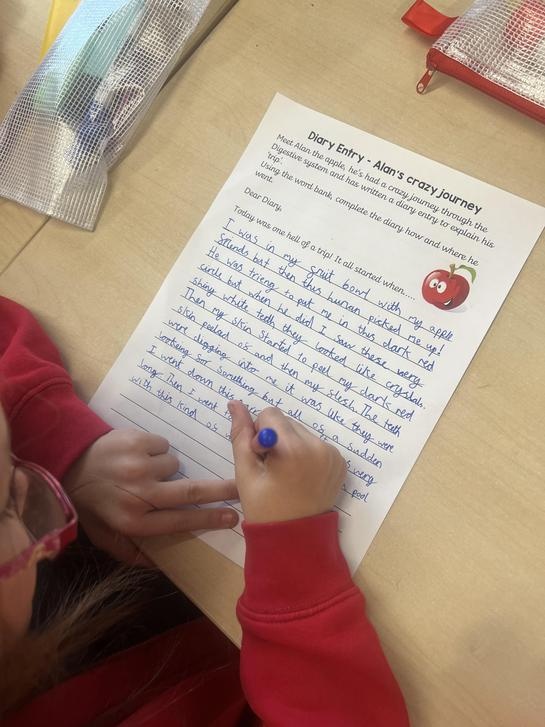 Diary Entry - Alan's crazy journey
Meet Alan the apple, he's had a crazy journey through the
Digestive system and has written a diary entry to explain his
'trip'.
Using the word bank, complete the diary how and where he
went.
Dear Diary,
Today was one hell of a trip! It all started when.....
I was in my fruit bowl with my apple
friends but then this human picked me up!
He was trieng to put me in this dark red
circle but when he did I saw these very
shiny white teeth they looked like crystals.
Then my skin started to peel my dark red
skin pealed off and then my flesh. The teeth
were digging into me it was like they were
looking for something but all of a sudden
I went down this very
long Then I went pool
with this kind of